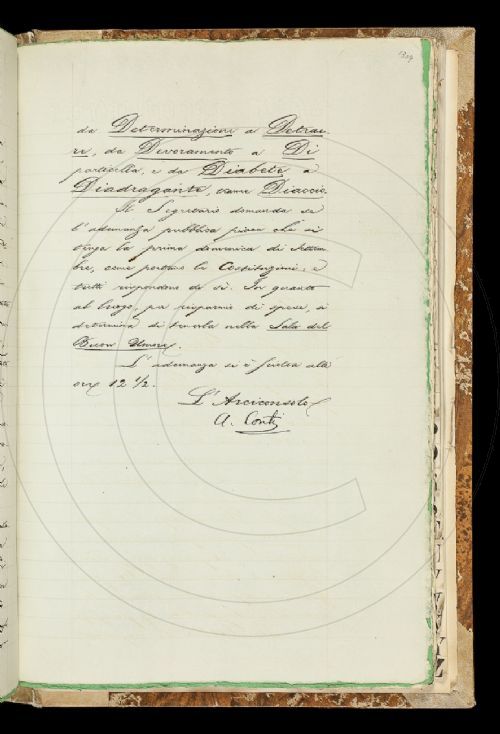 da Determinazione a Detrar-
re, da Devoramento a Di
particella, e da Diabete a
Diadragante, come Diaccio.
Il Segretario domanda se
l'adunanza pubblica piace che si
tenga la prima domenica di Settem-
bre, come portano le Costituzioni; e
tutti rispondono di sì. In quanto
al luogo, per risparmio di spese, si
determina di tenerla nella Sala del
Buon Umore.
L'adunanza si è sciolta alle
ore 12 1/2.
L'Arciconsolo
A. Conti